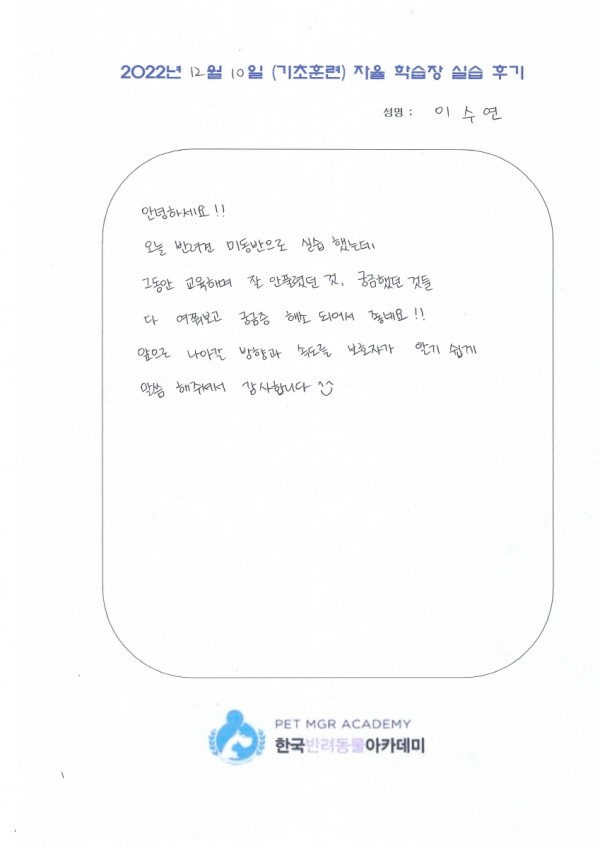 2022년 12월 10일 (기초훈련) 자율 학습장 실습 후기
성명 : 이수연
안녕하세요!!
오늘 반려견 미동반으로 실습 했는데
그동안 교육하며 잘 안풀렸던 것, 궁금했던 것들
다 여쭤보고 궁금증 해소 되어서 좋네요!!
앞으로 나아갈 방향과 속도를 보호자가 알기 쉽게
말씀 해주셔서 감사합니다 ^^
PET MGR ACADEMY
한국반려동물아카데미